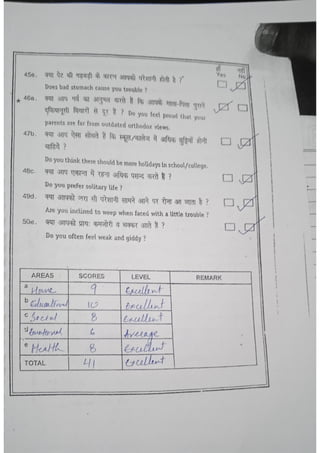 हाँ नहीं
Yes No
45e. क्या पेट की गड़बड़ी के कारण आपको परेशानी होती है ?
Does bad stomach cause you trouble ?
* 46a. क्या आप गर्व का अनुभव करते हैं कि आपके माता-पिता पुराने
दकियानूसी विचारों से दूर हैं ? Do you feel proud that your
parents are far from outdated orthodox views.
47b. क्या आप ऐसा सोचते हैं कि स्कूल/कालेज में अधिक छुट्टियाँ होनी
चाहिये ?
Do you think there should be more holidays in school/college.
48c. क्या आप एकान्त में रहना अधिक पसन्द करते हैं ?
Do you prefer solitary life ?
49d. क्या आपको जरा सी परेशानी सामने आने पर रोना आ जाता है ?
Are you inclined to weep when faced with a little trouble ?
50e. क्या आपको प्रायः कमजोरी व चक्कर आते हैं ?
Do you often feel weak and giddy ?
AREAS SCORES LEVEL REMARK
a Home 9 Excellent
b Educational 10 Excellent
c Social 8 Excellent
d Emotional 6 Average
e Health 8 Excellent
TOTAL 41 Excellent